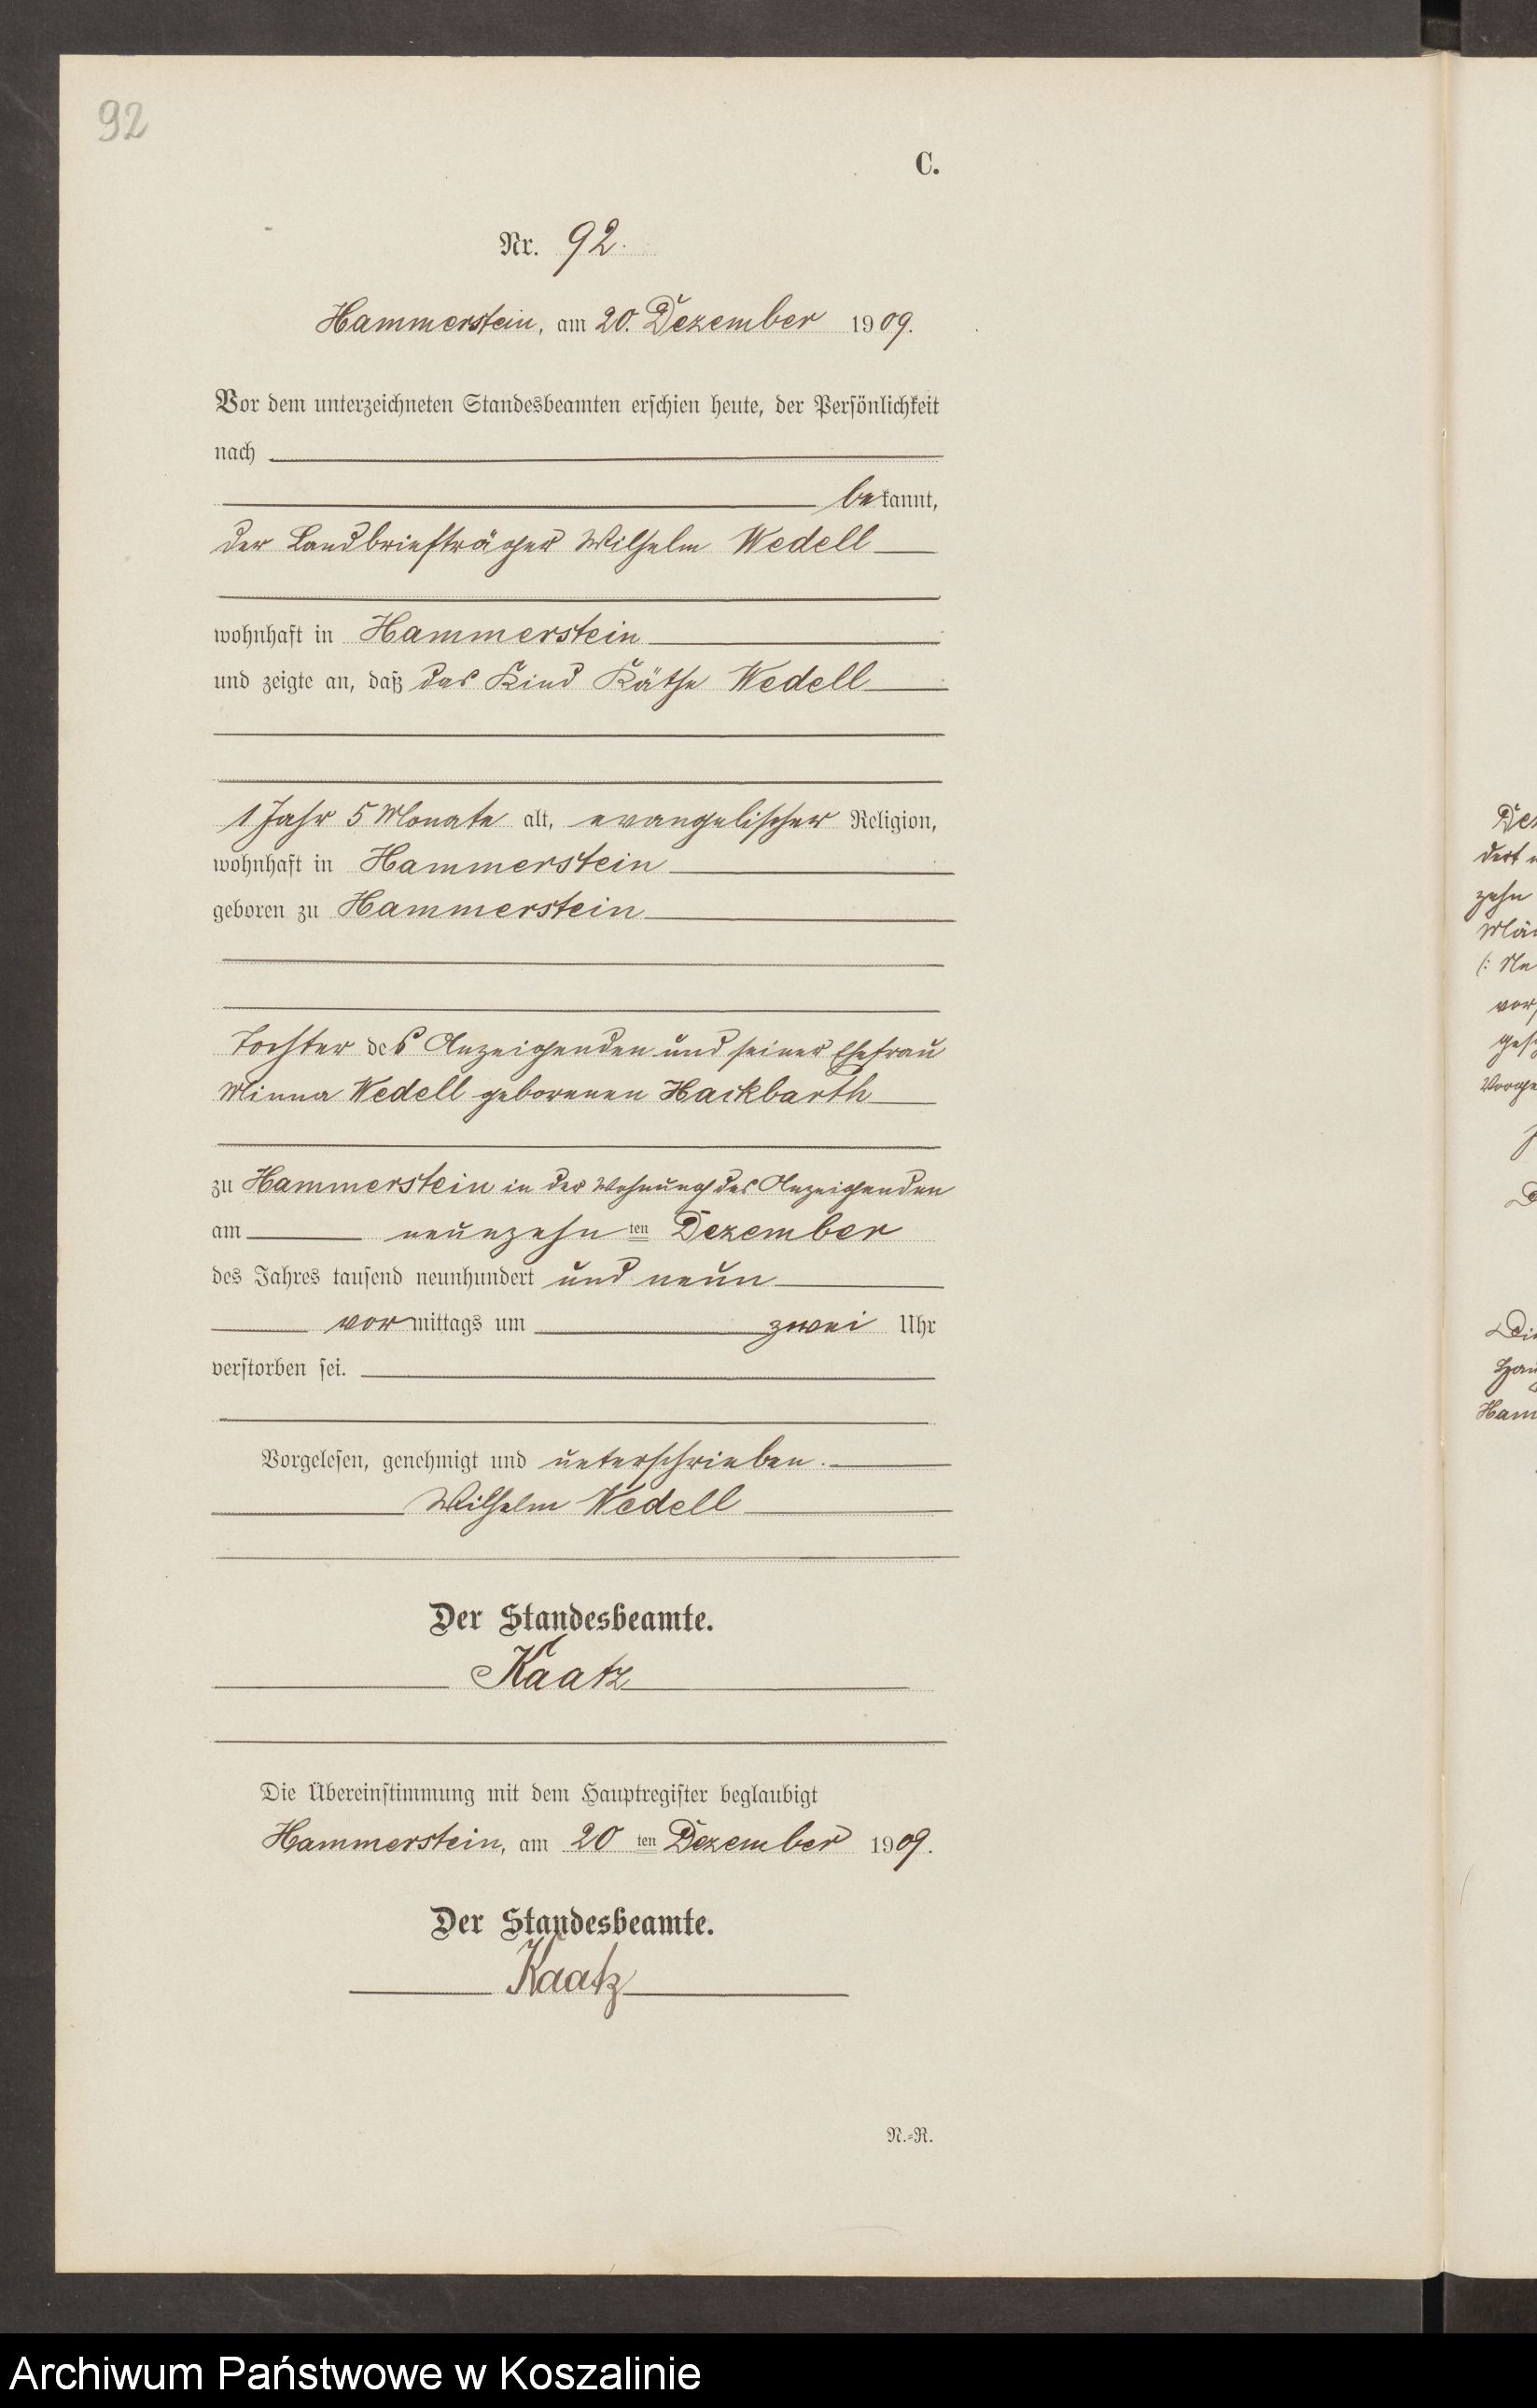 92
C.
Nr. 92.
Hammerstein, am 20. Dezember 1909.
Vor dem unterzeichneten Standesbeamten erschien heute, der Persönlichkeit
nach
bekannt,
der Landbriefträger Wilhelm Wedell
wohnhaft in Hammerstein
und zeigte an, daß das Kind Käthe Wedell
1 Jahr 5 Monate alt, evangelischer Religion,
wohnhaft in Hammerstein
geboren zu Hammerstein
Tochter des Anzeigenden und seiner Ehefrau
Minna Wedell geborenen Hackbarth
zu Hammerstein in der Wohnung des Anzeigenden
am neunzehnten Dezember
des Jahres tausend neunhundert und neun
vormittags um zwei Uhr
verstorben sei.
Vorgelesen, genehmigt und unterschrieben.
Wilhelm Wedell
Der Standesbeamte.
Kaatz
Die Übereinstimmung mit dem Hauptregister beglaubigt
Hammerstein, am 20ten Dezember 1909.
Der Standesbeamte.
Kaatz
N.=R.
dert
zehn
Archiwum Państwowe w Koszalinie